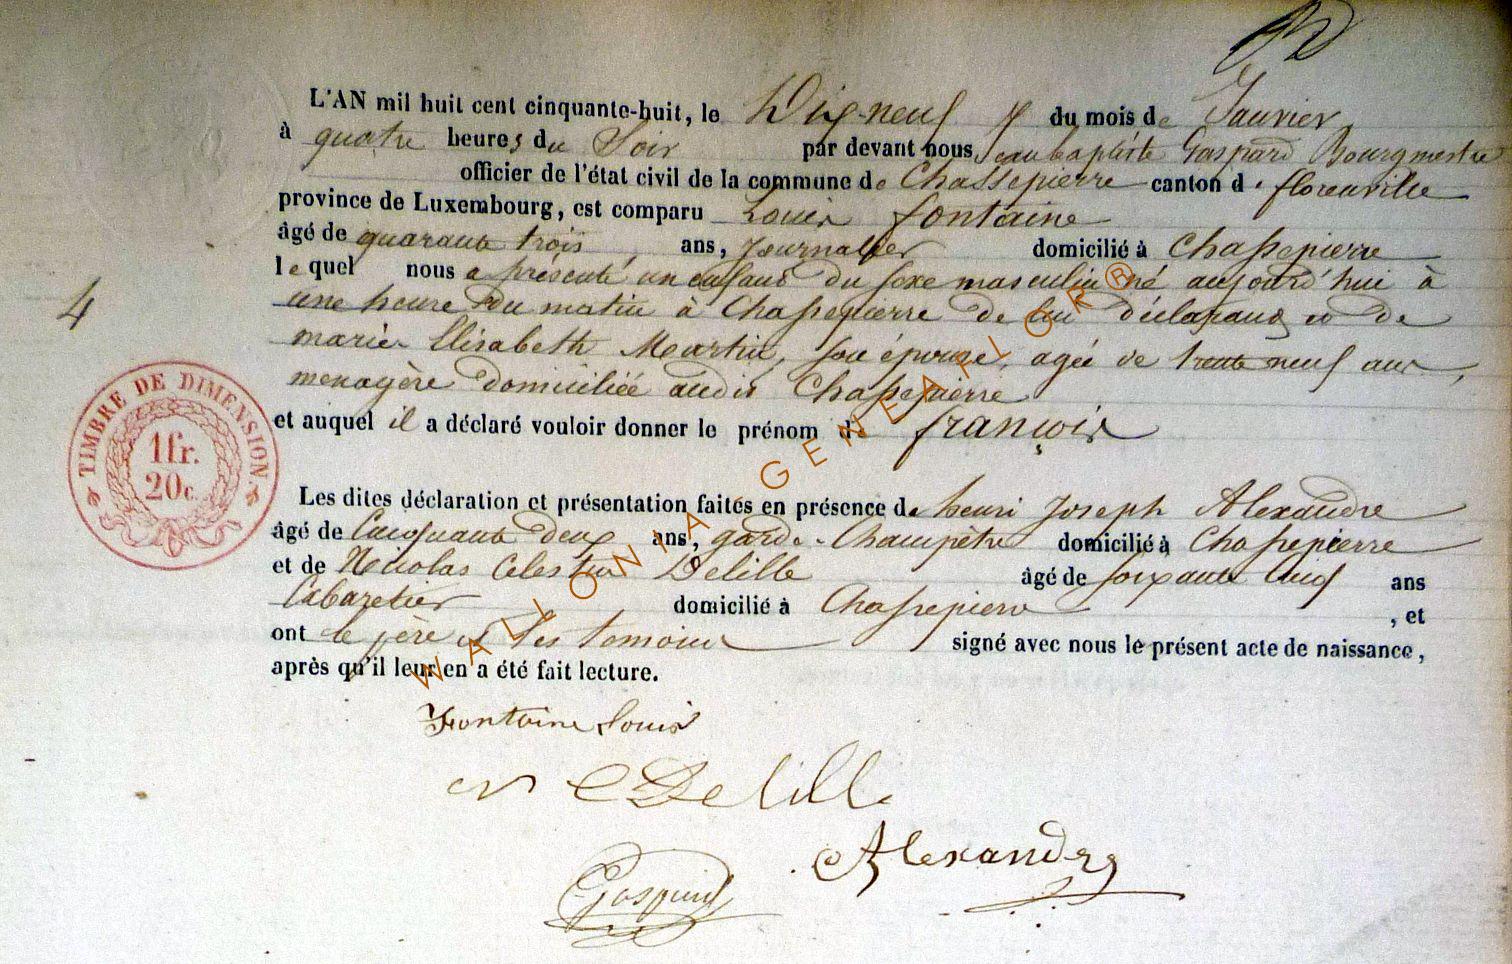 L'AN mil huit cent cinquante-huit, le Dix-neuf du mois de Janvier
à quatre heures du Soir par devant nous, Jean baptiste Gaspard Bourgmestre
officier de l'état civil de la commune de Chassepierre canton de florenville
province de Luxembourg, est comparu Louis fontaine
âgé de quarante trois ans, Journalier domicilié à Chassepierre
lequel nous a présenté un enfant du sexe masculin né aujourd'hui à
une heure du matin à Chassepierre de lui déclarant et de
marie Elisabeth Martin, son épouse, agée de trente neuf ans,
menagère domiciliée audit Chassepierre
et auquel il a déclaré vouloir donner le prénom de françois
4
TIMBRE DE DIMENSION.
1fr.
20c.
Les dites déclaration et présentation faites en présence de henri Joseph Alexandre
âgé de Cinquante deux ans, garde-Champêtre domicilié à Chassepierre
et de Nicolas Celestin Delille âgé de soixante cinq ans
Cabaretier domicilié à Chassepierre, et
ont le père et les temoins signé avec nous le présent acte de naissance,
après qu'il leur en a été fait lecture.
Fontaine Louis
N C Delille
Alexandre
Gaspard
WALLONIA GENEAFLOR®